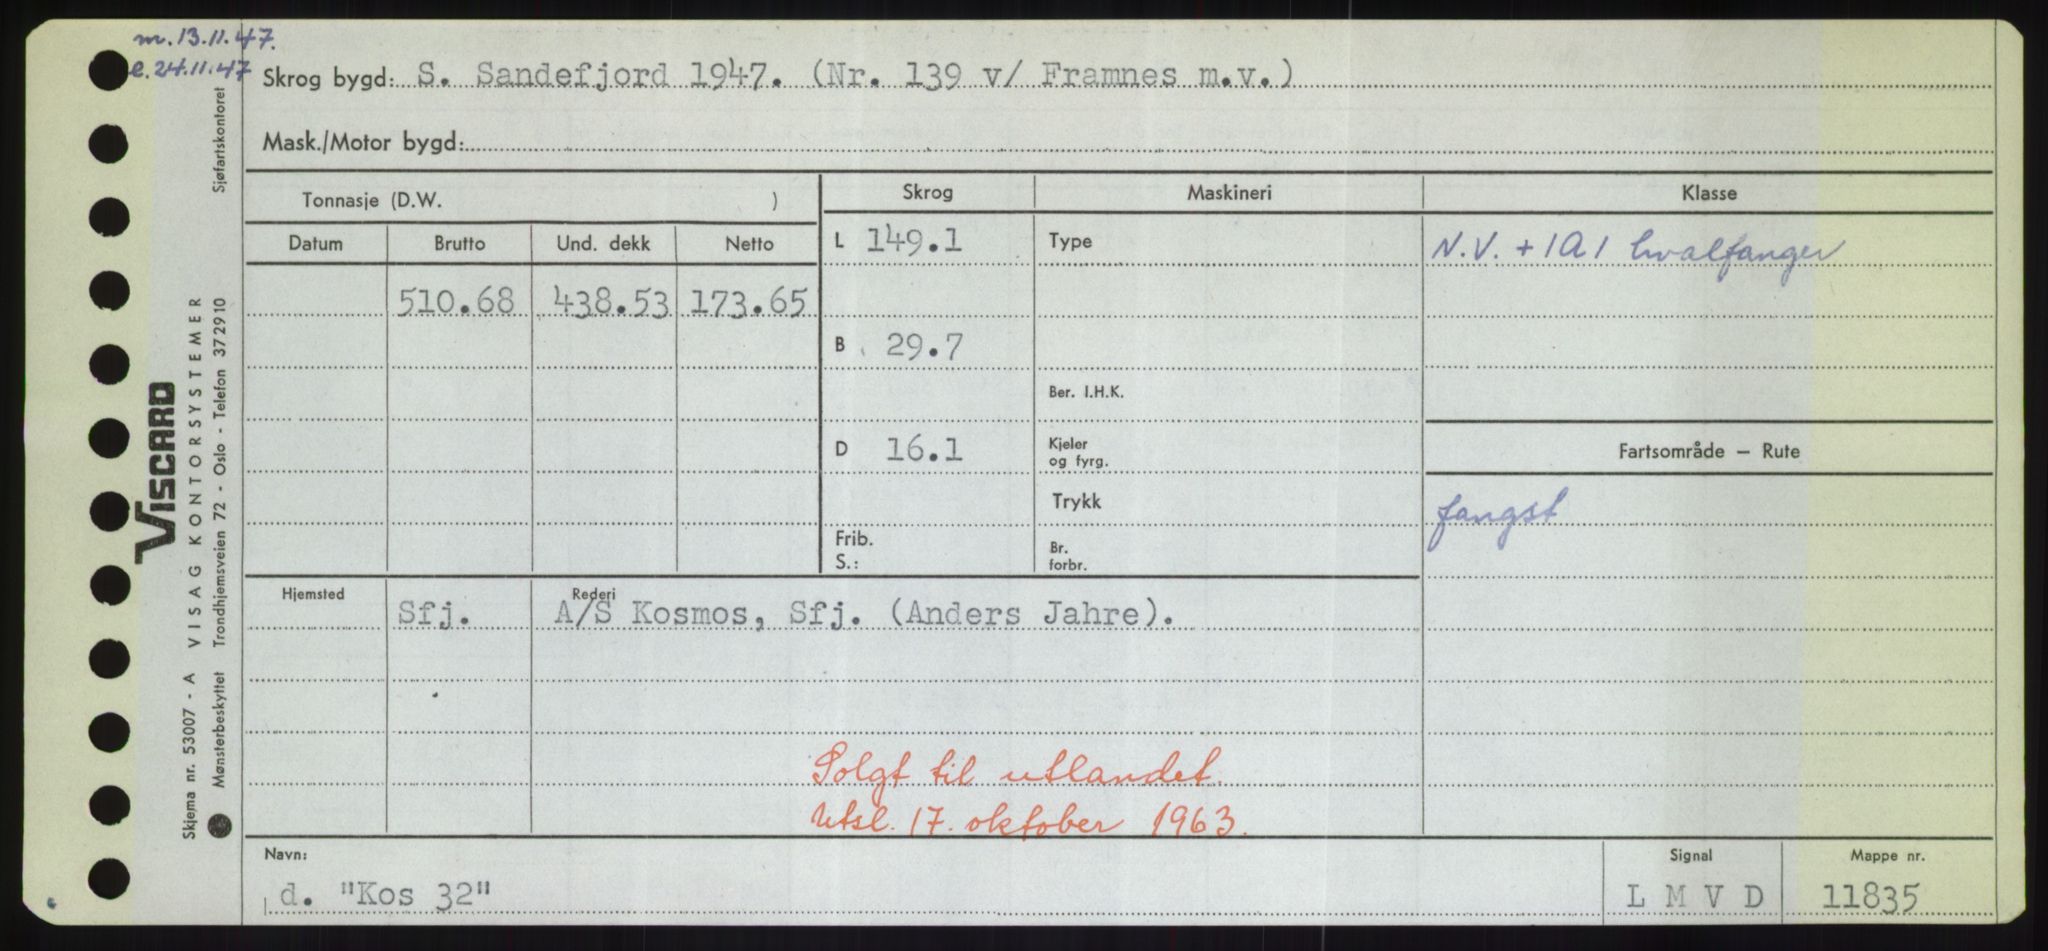 m. 13.11.47.
e. 24.11.47
Skrog bygd: S. Sandefjord 1947. (Nr. 139 v/ Framnes m.v.)
Mask./Motor bygd:
Tonnasje (D.W. )
Skrog
Maskineri
Klasse
Datum
Brutto
Und. dekk
Netto
L 149.1
Type
N.V. + 1A1 hvalfanger
510.68 438.53 173.65
B 29.7
Ber. I.H.K.
D 16.1
Kjeler
og fyrg.
Fartsområde — Rute
Trykk
fangst
Frib.
S.:
Br.
forbr.
Hjemsted
Sfj.
Rederi
A/S Kosmos, Sfj. (Anders Jahre).
Solgt til utlandet.
Utsl. 17. oktober 1963.
Navn:
d. "Kos 32"
Signal
L M V D
Mappe nr.
11835
Skjema nr. 53007 - A VISAG KONTORSYSTEMER
Mønsterbeskyttet Trondhjemsveien 72 - Oslo - Telefon 372910 Sjøfartskontoret
VISCARD